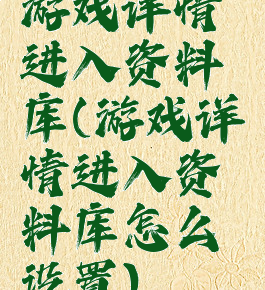 游戏详情
进入资料
库(游戏详
情进入资
料库怎么
设置)